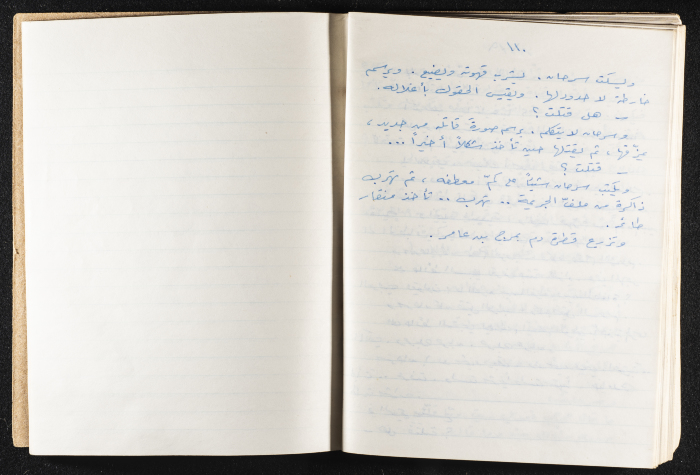 ١١٠
ويسكت سرحان. يشرب قهوته ويضيع. ويرسم
خارطة لا حدود لها. ويقيس الحقول بأغلاله.
ـ هل قتلت؟
وسرحان لا يتكلم. يرسم صورة قاتله من جديد،
يمزّقها، ثم يقتلها حين تأخذ شكلاً أخيراً...
ـ قتلت؟
ويكتب سرحان شيئاً على كمّ معطفه، ثم تهرب
ذاكرة من ملفّ الجريمة.. تهرب.. تأخذ منقار
طائر.
وتزرع قطرة دم بمرج بن عامر.